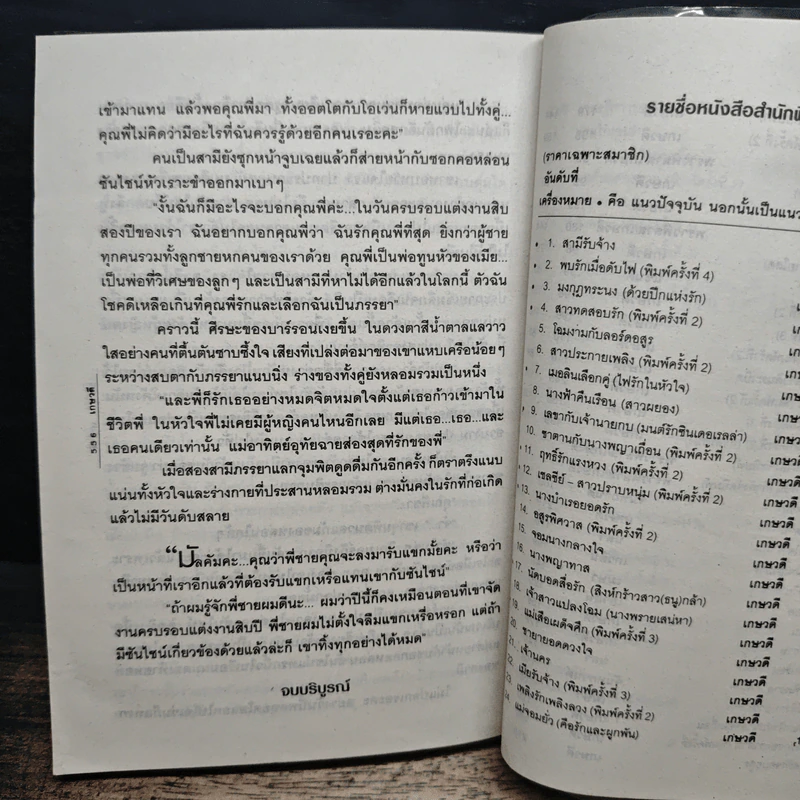 เข้ามาแทน แล้วพอคุณพี่มา ทั้งออตโตกับโอเว่นก็หายแวบไปทั้งคู่...
คุณพี่ไม่คิดว่ามีอะไรที่ฉันควรรู้ด้วยอีกคนเรอะคะ"
คนเป็นสามียังซุกหน้าจูบเฉยแล้วก็ส่ายหน้ากับซอกคอหล่อน
ซันไชน์หัวเราะขำออกมาเบาๆ
"งั้นฉันก็มีอะไรจะบอกคุณพี่ค่ะ...ในวันครบรอบแต่งงานสิบ
สองปีของเรา ฉันอยากบอกคุณพี่ว่า ฉันรักคุณพี่ที่สุด ยิ่งกว่าผู้ชาย
ทุกคนรวมทั้งลูกชายหกคนของเราด้วย คุณพี่เป็นพ่อทูนหัวของเมีย...
เป็นพ่อที่วิเศษของลูกๆ และเป็นสามีที่หาไม่ได้อีกแล้วในโลกนี้ ตัวฉัน
โชคดีเหลือเกินที่คุณพี่รักและเลือกฉันเป็นภรรยา"
คราวนี้ ศีรษะของบาร์รอนเงยขึ้น ในดวงตาสีน้ำตาลแลวาว
ใสอย่างคนที่ตื้นตันซาบซึ้งใจ เสียงที่เปล่งต่อมาของเขาแหบเครือน้อยๆ
ระหว่างสบตากับภรรยาแนบนิ่ง ร่างของทั้งคู่ยังหลอมรวมเป็นหนึ่ง
"และพี่ก็รักเธออย่างหมดจิตหมดใจตั้งแต่เธอก้าวเข้ามาใน
ชีวิตพี่ ในหัวใจพี่ไม่เคยมีผู้หญิงคนไหนอีกเลย มีแต่เธอ...เธอ...และ
เธอคนเดียวเท่านั้น แม่อาทิตย์อุทัยฉายส่องสุดที่รักของพี่"
เมื่อสองสามีภรรยาแลกจุมพิตดูดดื่มกันอีกครั้ง ก็ตราตรึงแนบ
แน่นทั้งหัวใจและร่างกายที่ประสานหลอมรวม ต่างมั่นคงในรักที่ก่อเกิด
แล้วไม่มีวันดับสลาย
"บัลคัมคะ...คุณว่าพี่ชายคุณจะลงมารับแขกมั้ยคะ หรือว่า
เป็นหน้าที่เราอีกแล้วที่ต้องรับแขกเหรื่อแทนเขากับซันไชน์"
"ถ้าผมรู้จักพี่ชายผมดีนะ... ผมว่าปีนี้ก็คงเหมือนตอนที่เขาจัด
งานครบรอบแต่งงานสิบปี พี่ชายผมไม่ตั้งใจลืมแขกเหรื่อหรอก แต่ถ้า
มีซันไชน์เกี่ยวข้องด้วยแล้วล่ะก็ เขาทิ้งทุกอย่างได้หมด"
จบบริบูรณ์
556 เกษวดี
รายชื่อหนังสือสำนักพิ
(ราคาเฉพาะสมาชิก)
อันดับที่
เครื่องหมาย • คือ แนวปัจจุบัน นอกนั้นเป็นแนว
• 1. สามีรับจ้าง
• 2. พบรักเมื่อดับไฟ (พิมพ์ครั้งที่ 4)
• 3. มงกุฎทระนง (ด้วยปีกแห่งรัก)
• 4. สาวทดสอบรัก (พิมพ์ครั้งที่ 2)
5. โฉมงามกับลอร์ดอสูร
6. สาวประกายเพลิง (พิมพ์ครั้งที่ 2)
• 7. เมอลินเลือกคู่ (ไฟรักในหัวใจ)
8. นางฟ้าคืนเรือน (สาวผยอง) เกษวดี
• 9. เลขากับเจ้านายกบ (มนต์รักซินเดอเรลล่า) เกษวดี
10. ซาตานกับนางพญาเถื่อน (พิมพ์ครั้งที่ 2) เกษวดี
• 11. ฤทธิ์รักแรงหวง (พิมพ์ครั้งที่ 2) เกษวดี
• 12. เชลซีย์ - สาวปราบหนุ่ม (พิมพ์ครั้งที่ 2) เกษวดี
• 13. นางบำเรอยอดรัก เกษวดี
14. อสูรพิศวาส (พิมพ์ครั้งที่ 2) เกษวดี
15. จอมนางกลางใจ เกษวดี
16. นางพญาทาส เกษวดี
• 17. นัดบอดสื่อรัก (สิงห์กร้าวสาว(ธนู)กล้า) เกษวดี
18. เจ้าสาวแปลงโฉม (นางพรายเสน่หา) เกษวดี
19. แม่เสือเผด็จศึก (พิมพ์ครั้งที่ 3) เกษวดี
20. ชายายอดดวงใจ เกษวดี
21. เจ้านคร เกษวดี
22. เมียรับจ้าง (พิมพ์ครั้งที่ 3) เกษวดี
23. เพลิงรักเพลิงลวง (พิมพ์ครั้งที่ 2) เกษวดี
24. แม่จอมยั่ว (คือรักและผูกพัน) เกษวดี